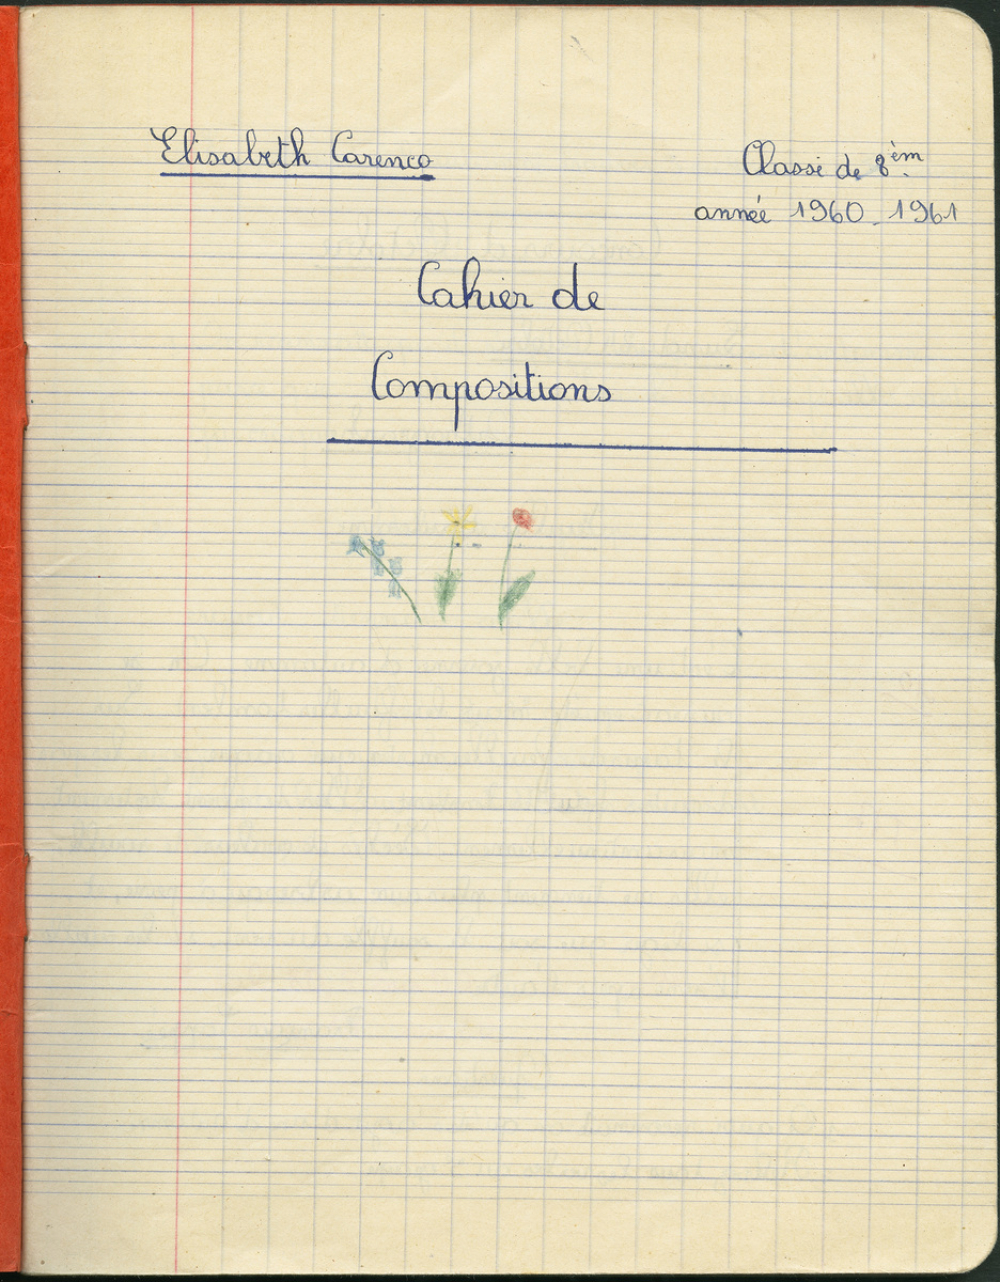 Elisabeth Carenco
Classe de 8èm
année 1960_1961
Cahier de
Compositions